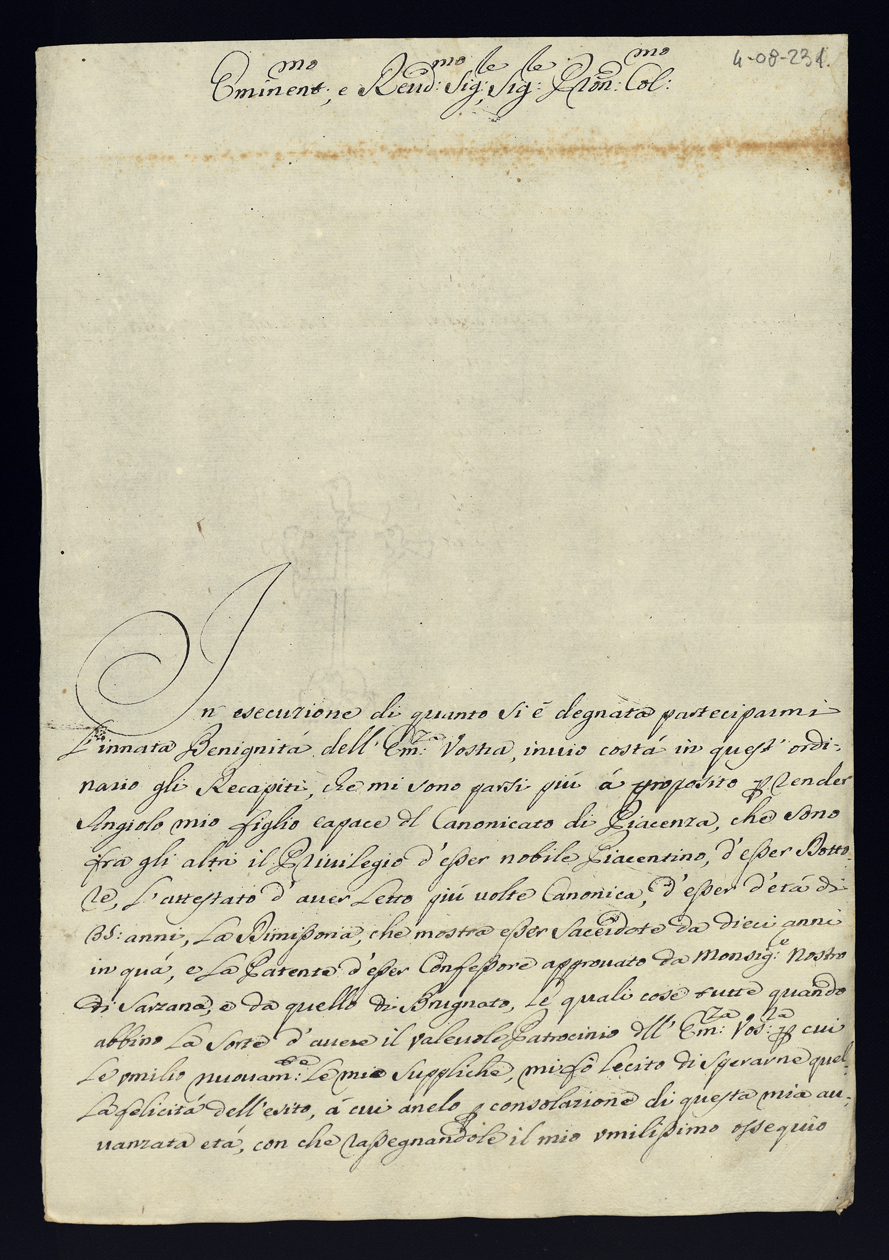 4-08-231.
Eminent:mo, e Reud:mo Sig:le, Sig:le Pron: Col:mo
In esecuzione di quanto si è degnata parteciparmi
L'innata Benignitá dell' Em:za Vostra, inuio costá in quest' ordi:
nario gli Recapiti, che mi sono parsi piú á proposito p render
Angiolo mio figlio capace dl Canonicato di Piacenza, che sono
fra gli altri il Priuilegio d'esser nobile Piacentino, d'esser Dotto:
re, L'attestato d'auer Letto piú uolte Canonica, d'esser d'etá di
35: anni, La Dimissoria, che mostra esser Sacerdote da dieci anni
in quá, e La Patente d'esser Confessore approuato da Monsig:re Nostro
di Sarzana, e da quello di Brugnato, Le quali cose tutte quando
abbino La Sorte d'auere il ualeuole Patrocinio dll' Em:za Vos:ra p cui
Le umilio nuouam:te Le mie Suppliche, mi fò Lecito di Sperarne quel:
La felicitá dell'esito, á cui anelo p consolazione di questa mia au:
uanzata etá, con che rassegnandole il mio umilissimo ossequio